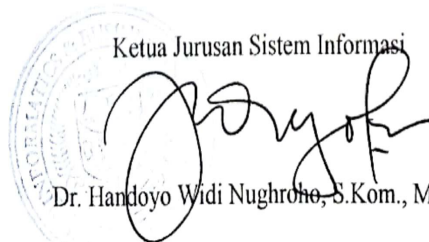 Ketua Jurusan Sistem Informasi
Dr. Handoyo Widi Nughroho, S.Kom., M